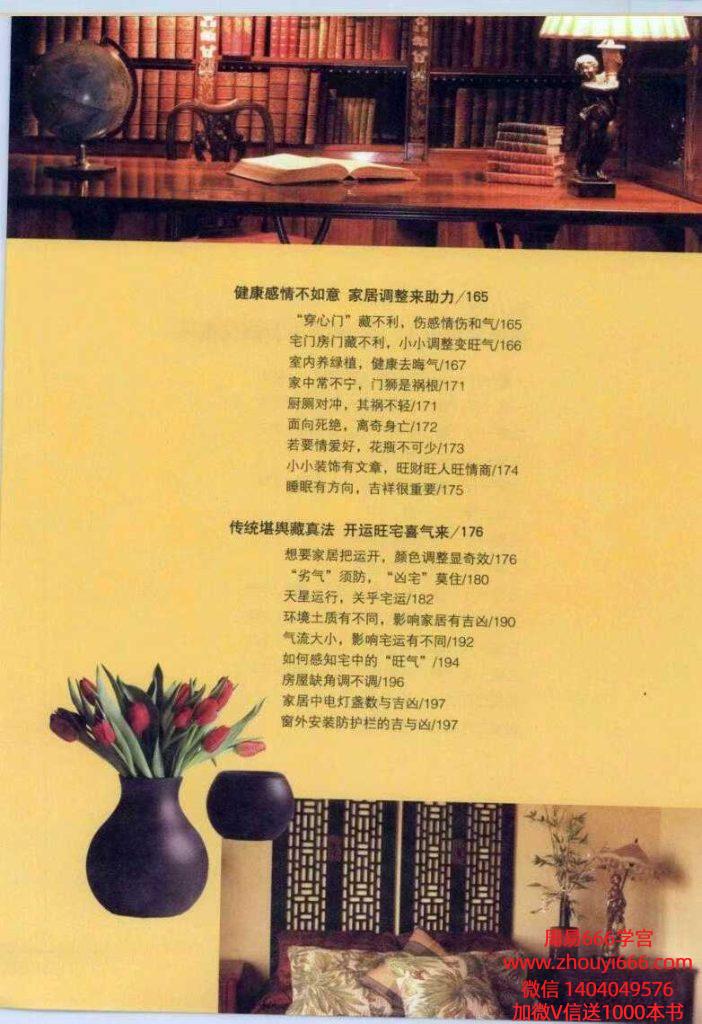 健康感情不如意 家居调整来助力/165
“穿心门”藏不利，伤感情伤和气/165
宅门房门藏不利，小小调整变旺气/166
室内养绿植，健康去晦气/167
家中常不宁，门狮是祸根/171
厨厕对冲，其祸不轻/171
面向死绝，离奇身亡/172
若要情爱好，花瓶不可少/173
小小装饰有文章，旺财旺人旺情商/174
睡眠有方向，吉祥很重要/175
传统堪舆藏真法 开运旺宅喜气来/176
想要家居把运开，颜色调整显奇效/176
“劣气”须防，“凶宅”莫住/180
天星运行，关乎宅运/182
环境土质有不同，影响家居有吉凶/190
气流大小，影响宅运有不同/192
如何感知宅中的“旺气”/194
房屋缺角调不调/196
家居中电灯盏数与吉凶/197
窗外安装防护栏的吉与凶/197
周易666学宫
www.zhouyi666.com
微信 1404049576
加微V信送1000本书